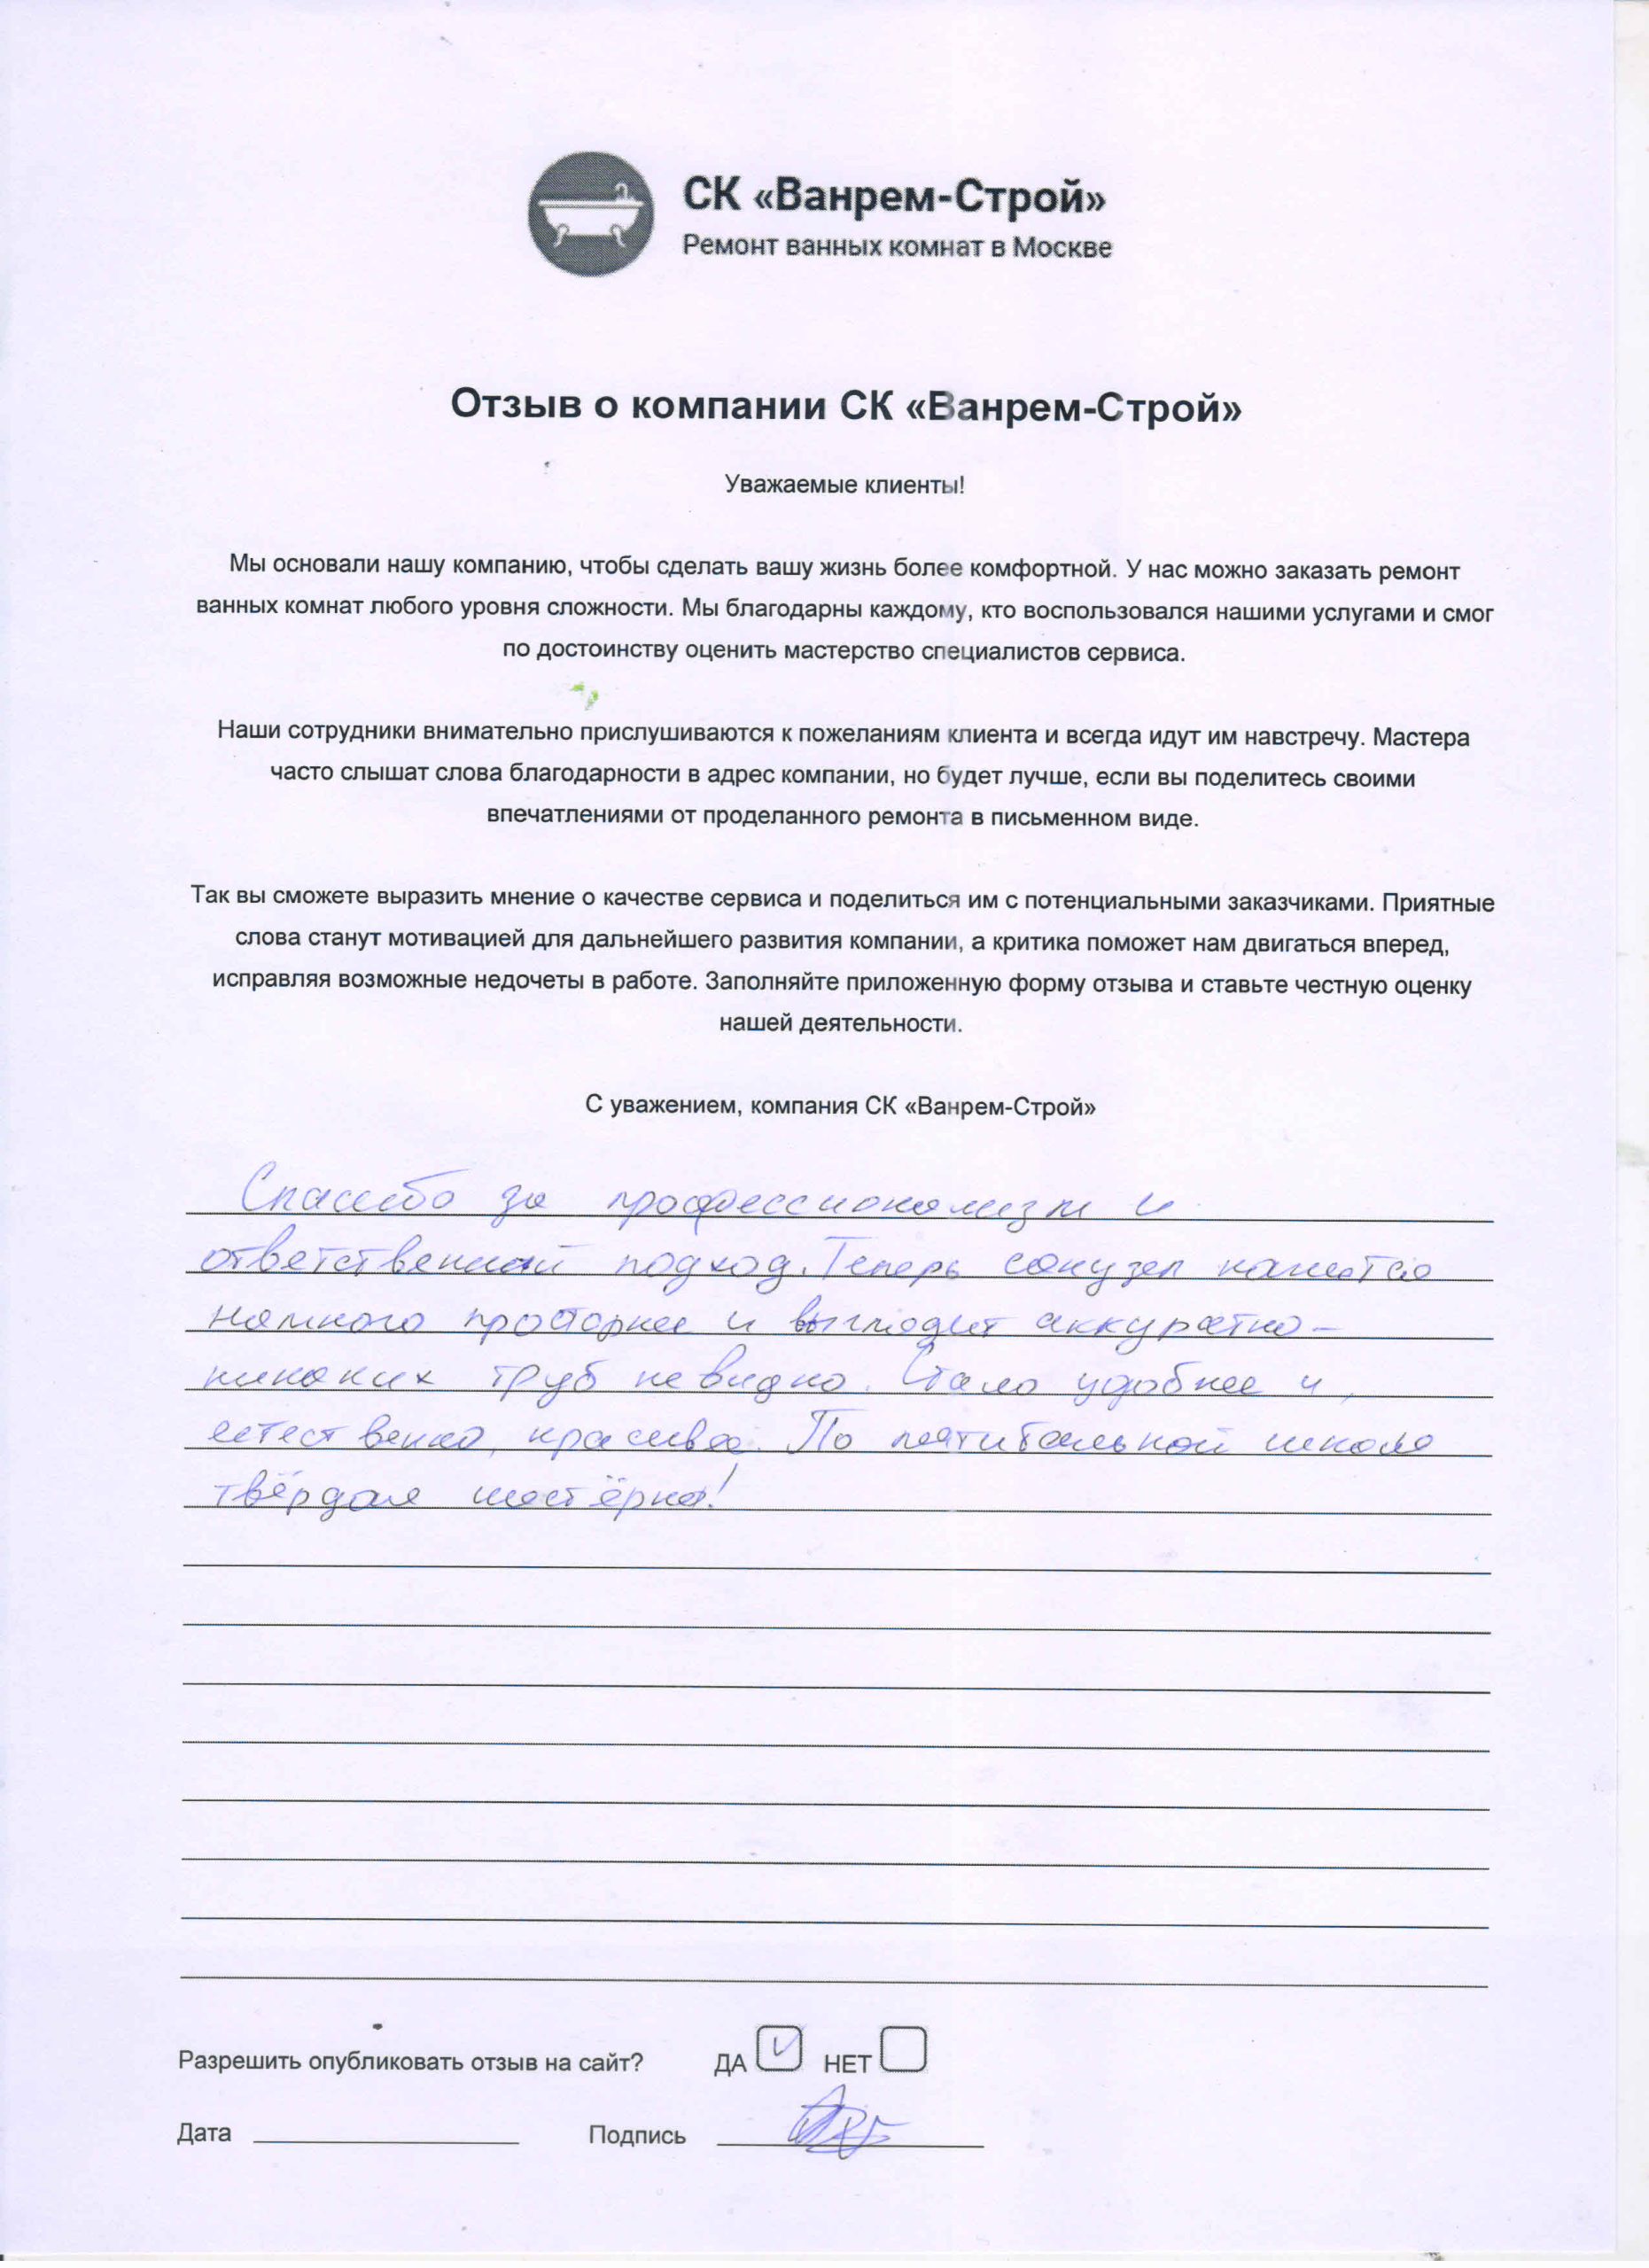 СК «Ванрем-Строй»
Ремонт ванных комнат в Москве
Отзыв о компании СК «Ванрем-Строй»
Уважаемые клиенты!
Мы основали нашу компанию, чтобы сделать вашу жизнь более комфортной. У нас можно заказать ремонт
ванных комнат любого уровня сложности. Мы благодарны каждому, кто воспользовался нашими услугами и смог
по достоинству оценить мастерство специалистов сервиса.
Наши сотрудники внимательно прислушиваются к пожеланиям клиента и всегда идут им навстречу. Мастера
часто слышат слова благодарности в адрес компании, но будет лучше, если вы поделитесь своими
впечатлениями от проделанного ремонта в письменном виде.
Так вы сможете выразить мнение о качестве сервиса и поделиться им с потенциальными заказчиками. Приятные
слова станут мотивацией для дальнейшего развития компании, а критика поможет нам двигаться вперед,
исправляя возможные недочеты в работе. Заполняйте приложенную форму отзыва и ставьте честную оценку
нашей деятельности.
С уважением, компания СК «Ванрем-Строй»
Спасибо за профессионализм и
ответственный подход. Теперь санузел кажется
намного просторнее и выглядит аккуратно –
никаких труб не видно. Стало удобнее и,
естественно, красивее. По пятибальной шкале
твёрдая шестёрка!
Разрешить опубликовать отзыв на сайт? ДА НЕТ
Дата Подпись